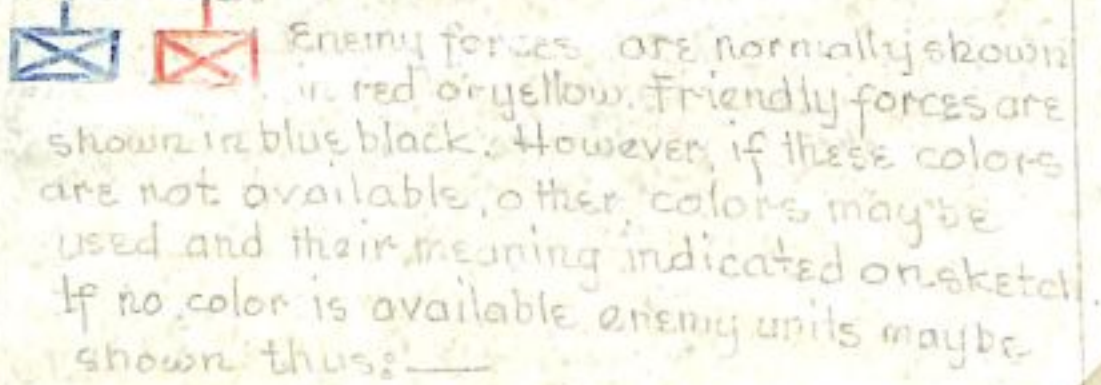 Enemy forces are normally shown
in red or yellow. Friendly forces are
shown in blue black. However, if these colors
are not available, other colors may be
used and their meaning indicated on sketch.
If no color is available enemy units may be
shown thus: